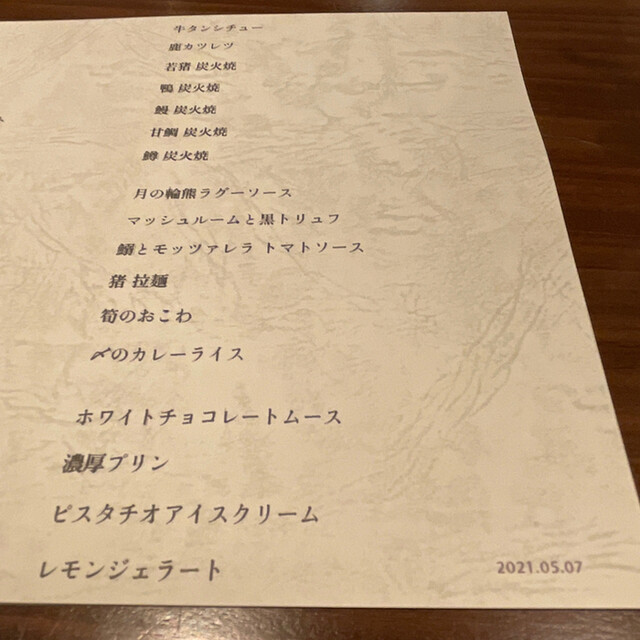 牛タンシチュー
鹿カツレツ
若猪 炭火焼
鴨 炭火焼
鰻 炭火焼
甘鯛 炭火焼
鱒 炭火焼
月の輪熊ラグーソース
マッシュルームと黒トリュフ
鰯とモッツァレラ トマトソース
猪 拉麺
筍のおこわ
〆のカレーライス
ホワイトチョコレートムース
濃厚プリン
ピスタチオアイスクリーム
レモンジェラート
2021.05.07